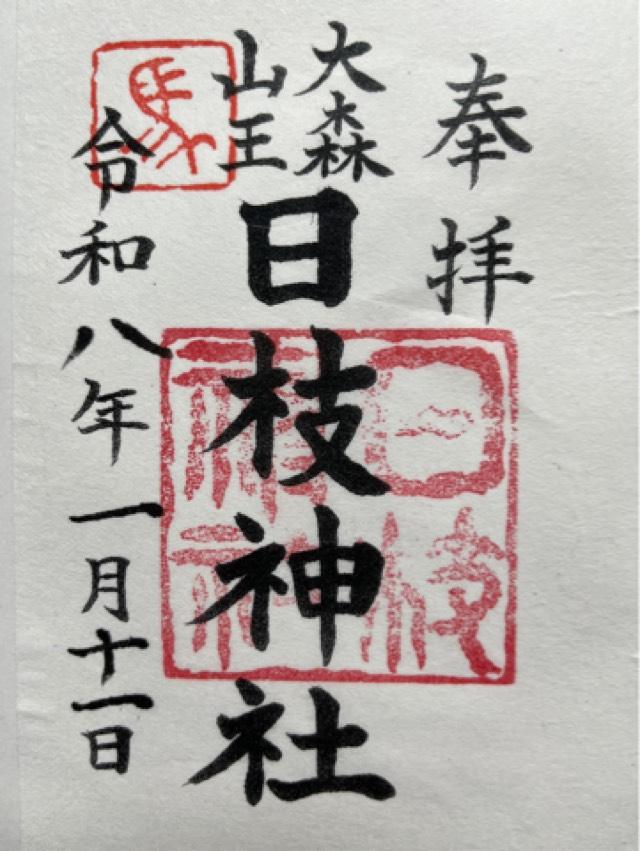 奉拝
大森
山王
日枝神社
令和八年一月十一日
馬
日枝神社